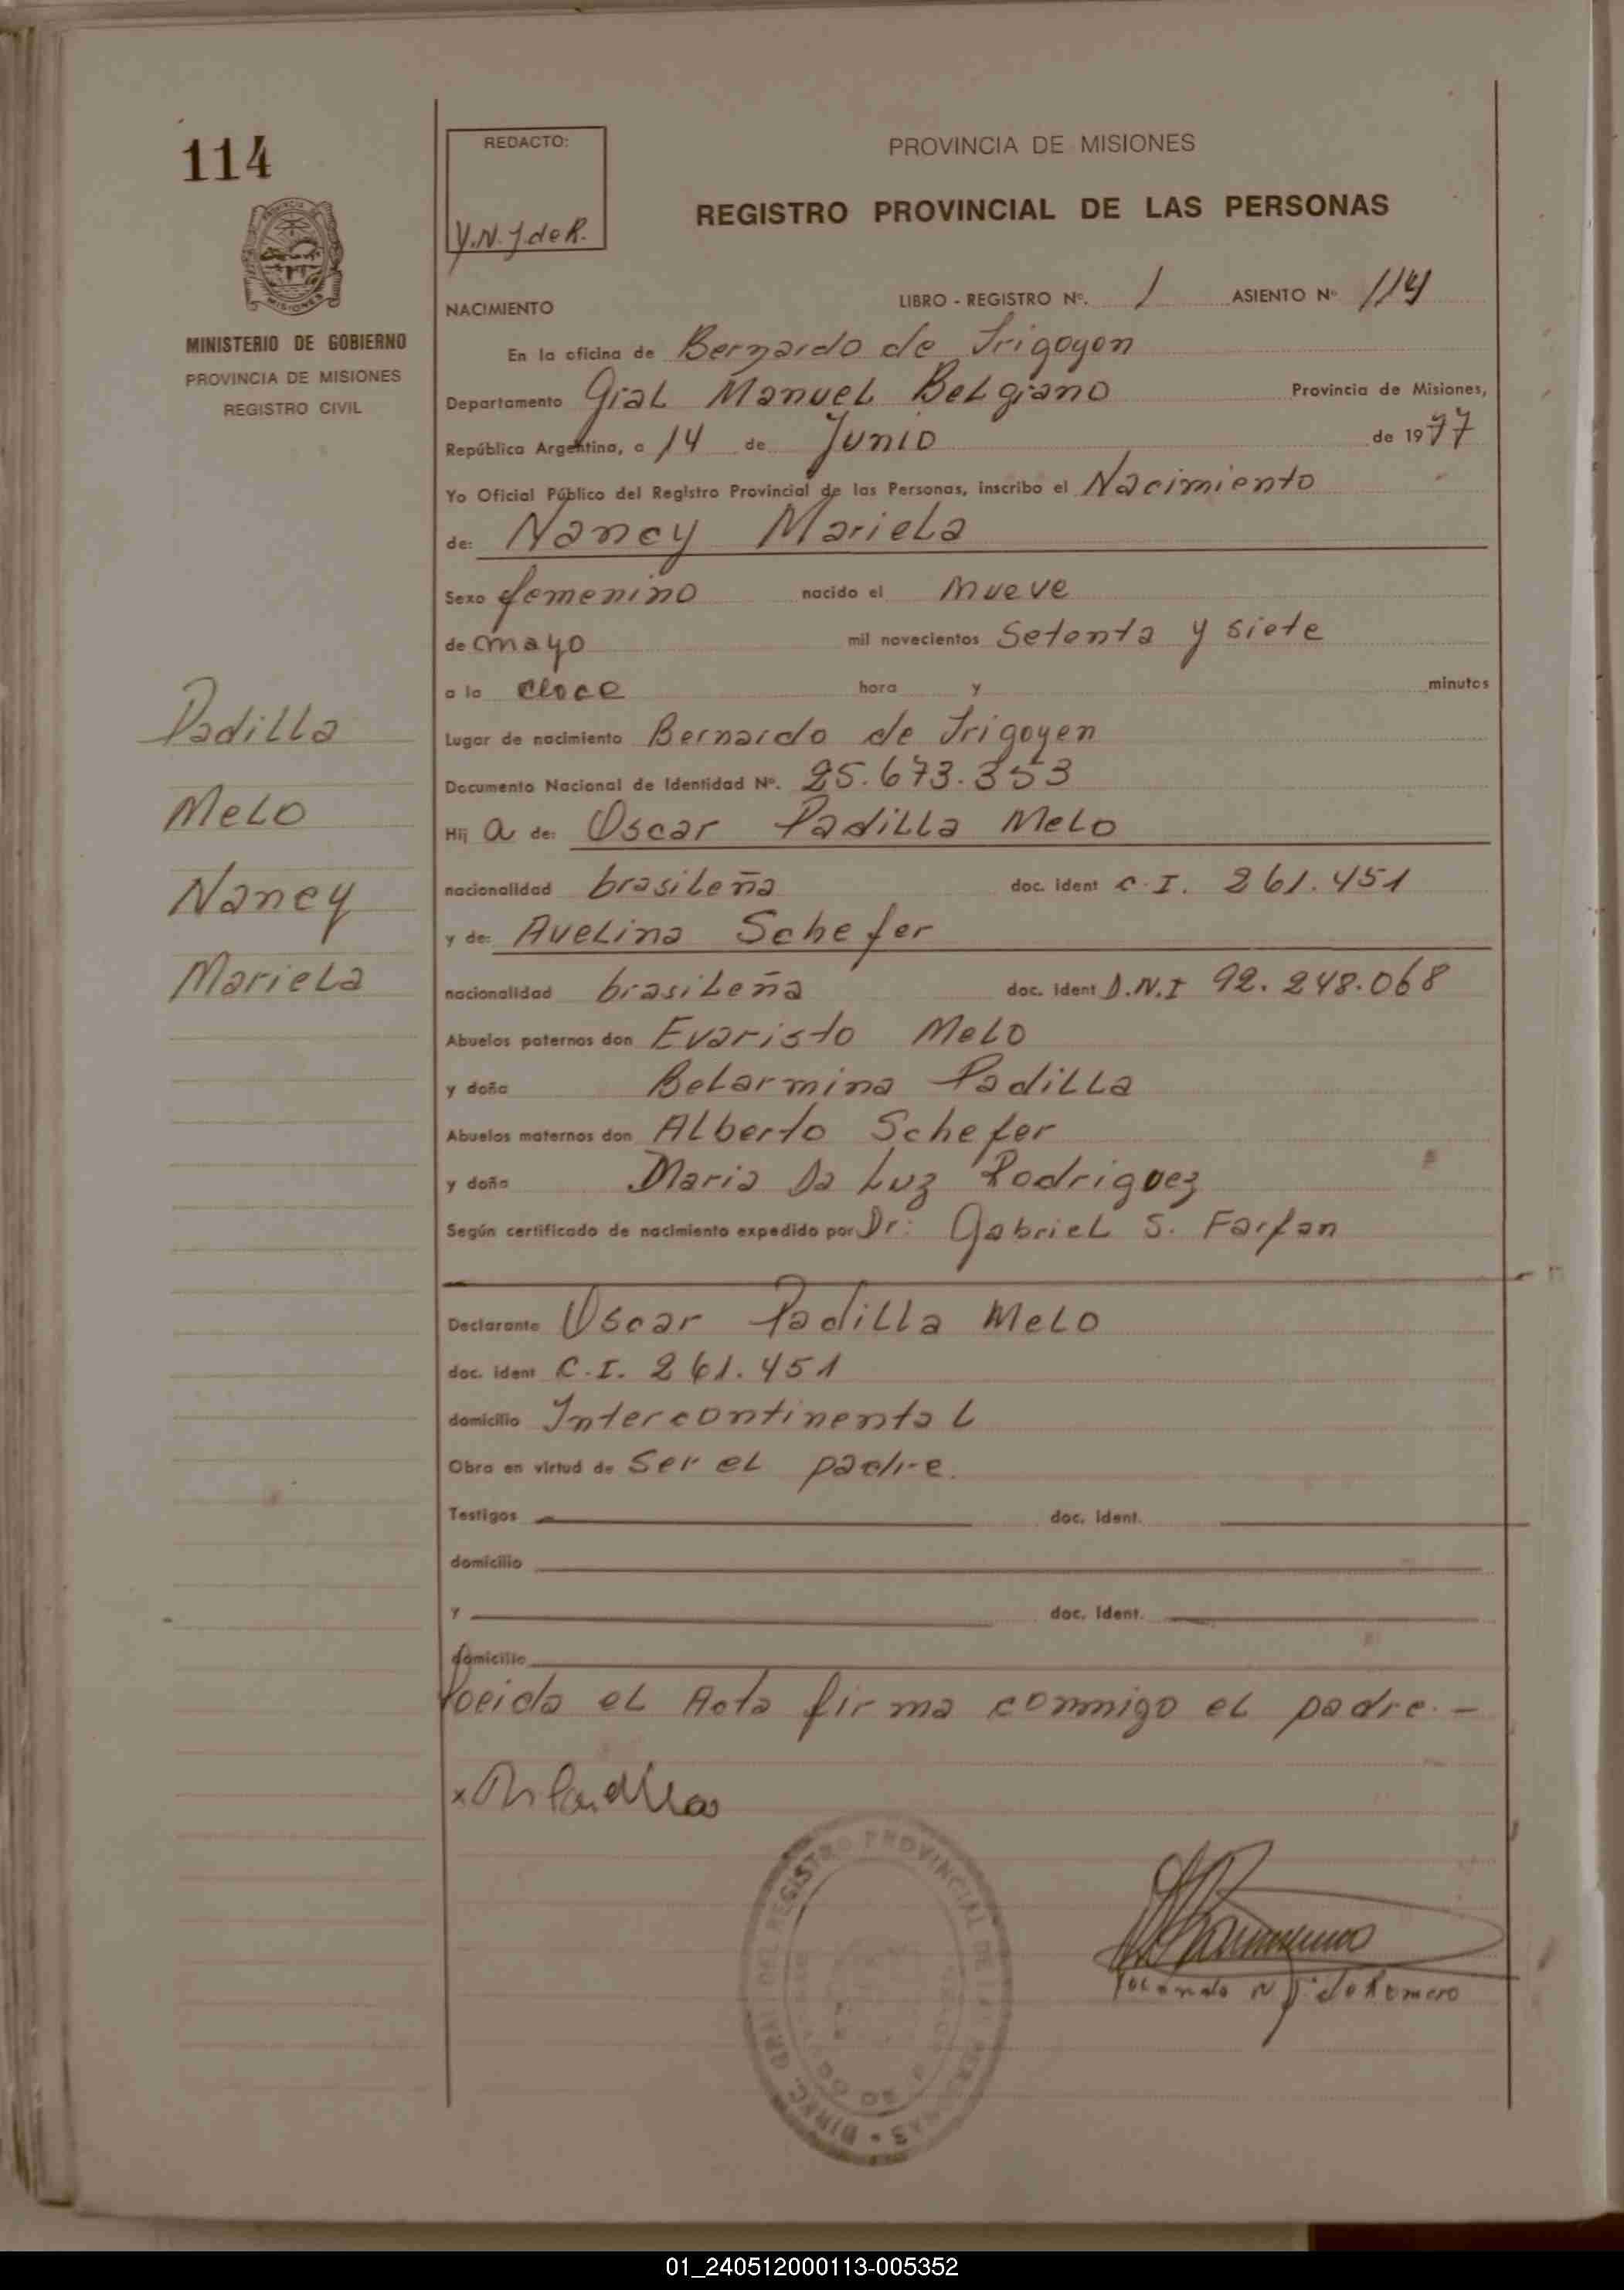 114
REDACTO:
Y.N.J. de R.
PROVINCIA DE MISIONES
REGISTRO PROVINCIAL DE LAS PERSONAS
MISIONES
MINISTERIO DE GOBIERNO
PROVINCIA DE MISIONES
REGISTRO CIVIL
NACIMIENTO
LIBRO - REGISTRO Nº. 1 ASIENTO Nº 114
En la oficina de Bernardo de Irigoyen
Departamento Gral Manuel Belgrano Provincia de Misiones,
República Argentina, a 14 de Junio de 1977
Yo Oficial Público del Registro Provincial de las Personas, inscribo el Nacimiento
de: Nancy Mariela
Sexo femenino nacido el nueve
de mayo mil novecientos Setenta y siete
a la doce hora y minutos
Lugar de nacimiento Bernardo de Irigoyen
Documento Nacional de Identidad Nº. 25.673.353
Hij a de: Oscar Padilla Melo
nacionalidad brasileña doc. ident C.I. 261.451
y de: Avelina Schefer
nacionalidad brasileña doc. ident D.N.I 92.248.068
Abuelos paternos don Evaristo Melo
y doña Belarmina Padilla
Abuelos maternos don Alberto Schefer
y doña Maria Da Luz Rodriguez
Según certificado de nacimiento expedido por Dr: Gabriel S. Farfan
Padilla
Melo
Nancy
Mariela
Declarante Oscar Padilla Melo
doc. ident C.I. 261.451
domicilio Intercontinental
Obra en virtud de Ser el padre.
Testigos doc. ident.
domicilio
y doc. ident.
domicilio
Leida el Acta firma conmigo el padre.-
x Padilla
DIREC. GRAL DEL REGISTRO PROVINCIAL DE LAS PERSONAS
N J. de Romero
01_240512000113-005352